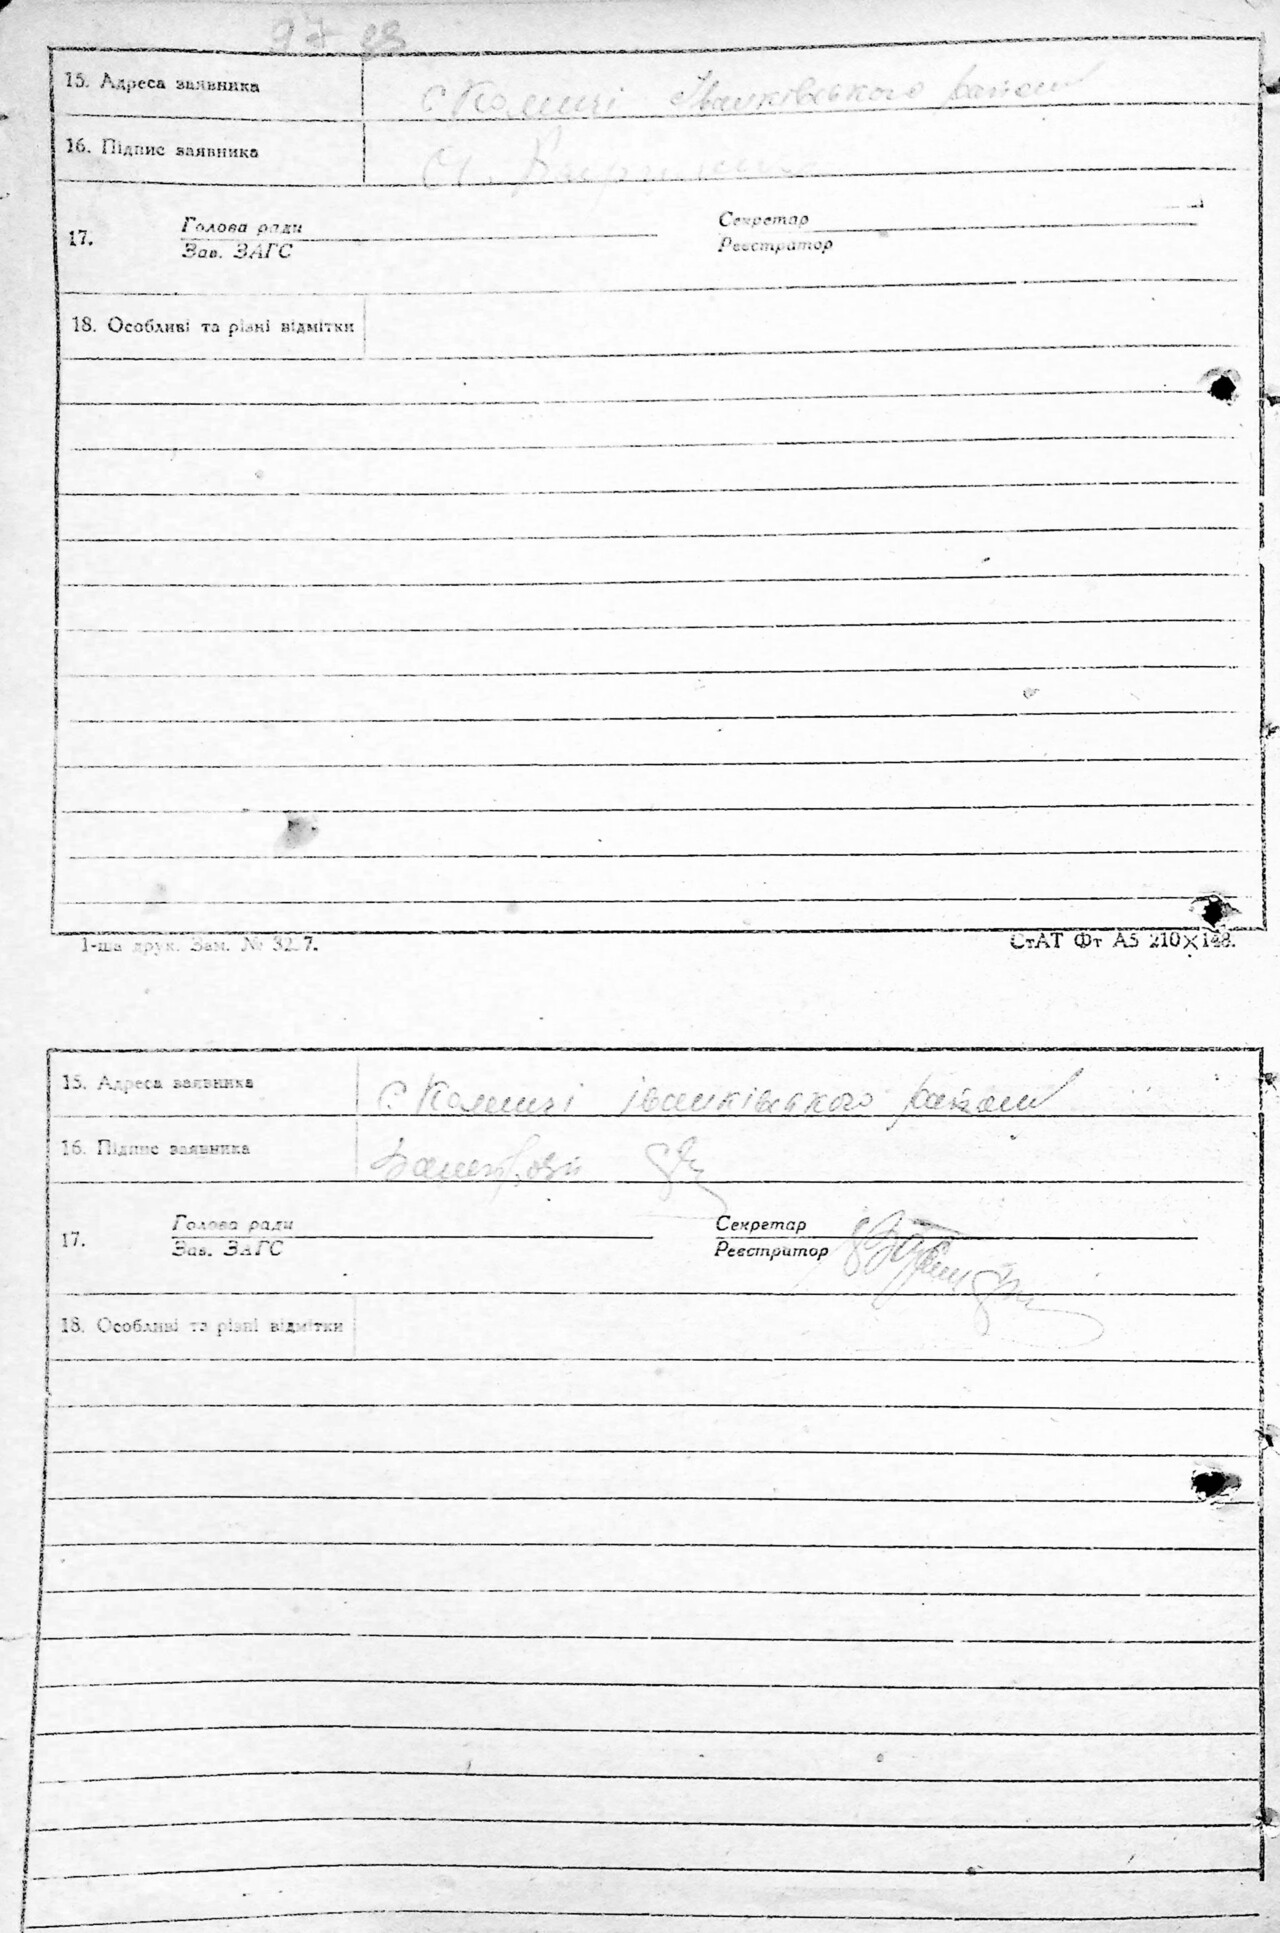 97
15. Адреса заявника с Коленці Іванківського району
16. Підпис заявника
17. Голова ради Секретар
Зав. ЗАГС Реєстратор
18. Особливі та різні відмітки
1-ша друк. Зам. № 32_7. СтАТ Фт А5 210×148.
15. Адреса заявника с. Коленці Іванківського району
16. Підпис заявника
17. Голова ради Секретар
Зав. ЗАГС Реєстратор
18. Особливі та різні відмітки